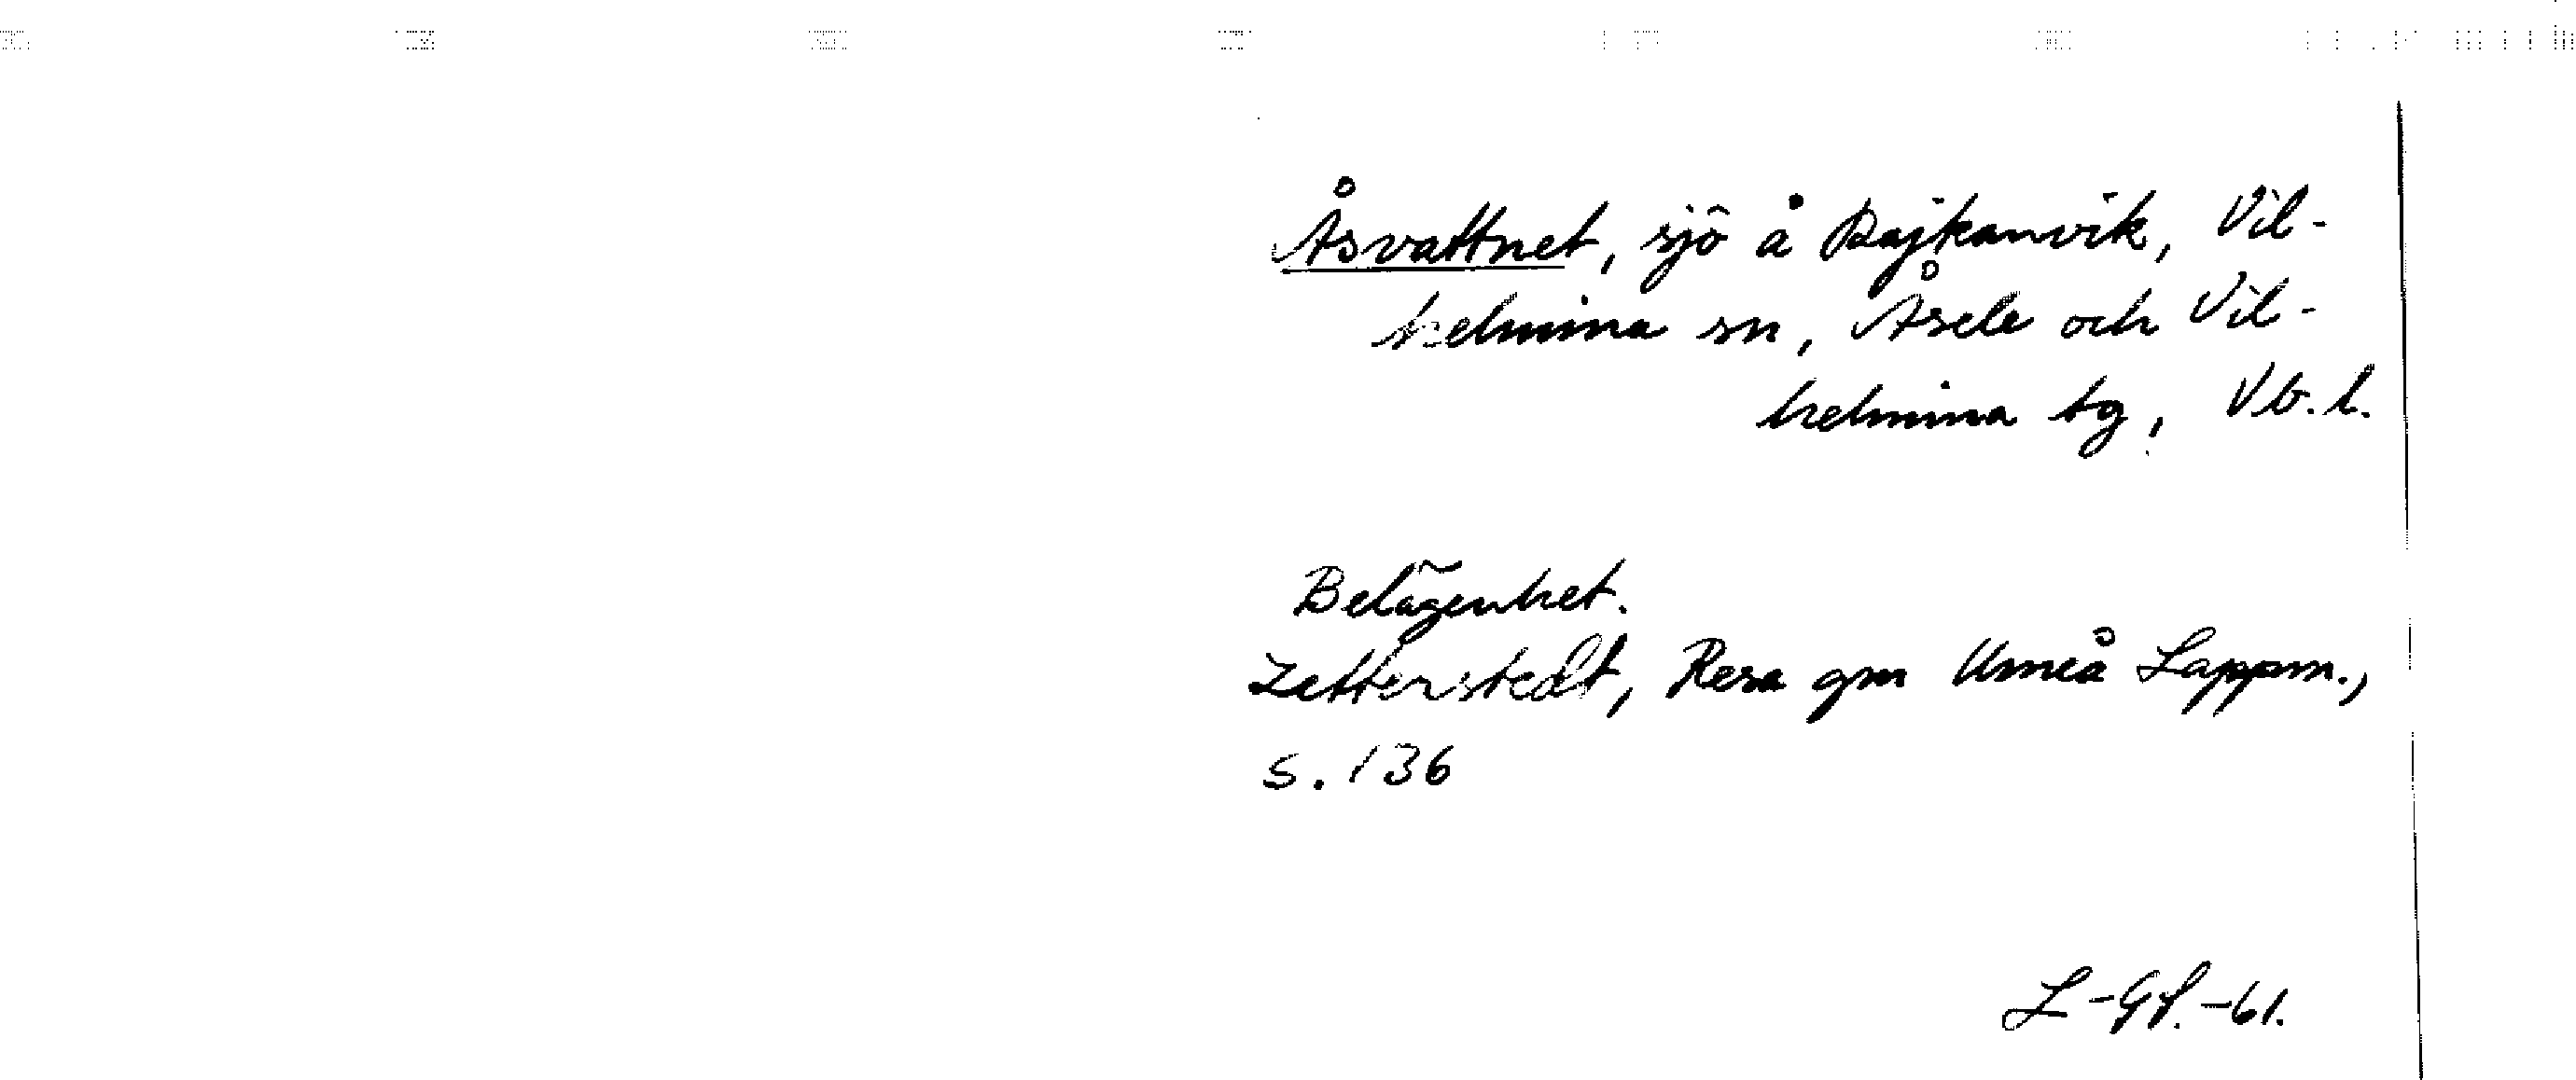 Åsvattnet, sjö å Bajkanvik, Vil-
helmina sn, Åsele och Vil-
helmina tg, Vb. l.
Belägenhet.
Zetterstedt, Resa gm Umeå Lappm.,
s. 136
L-Gf.-61.